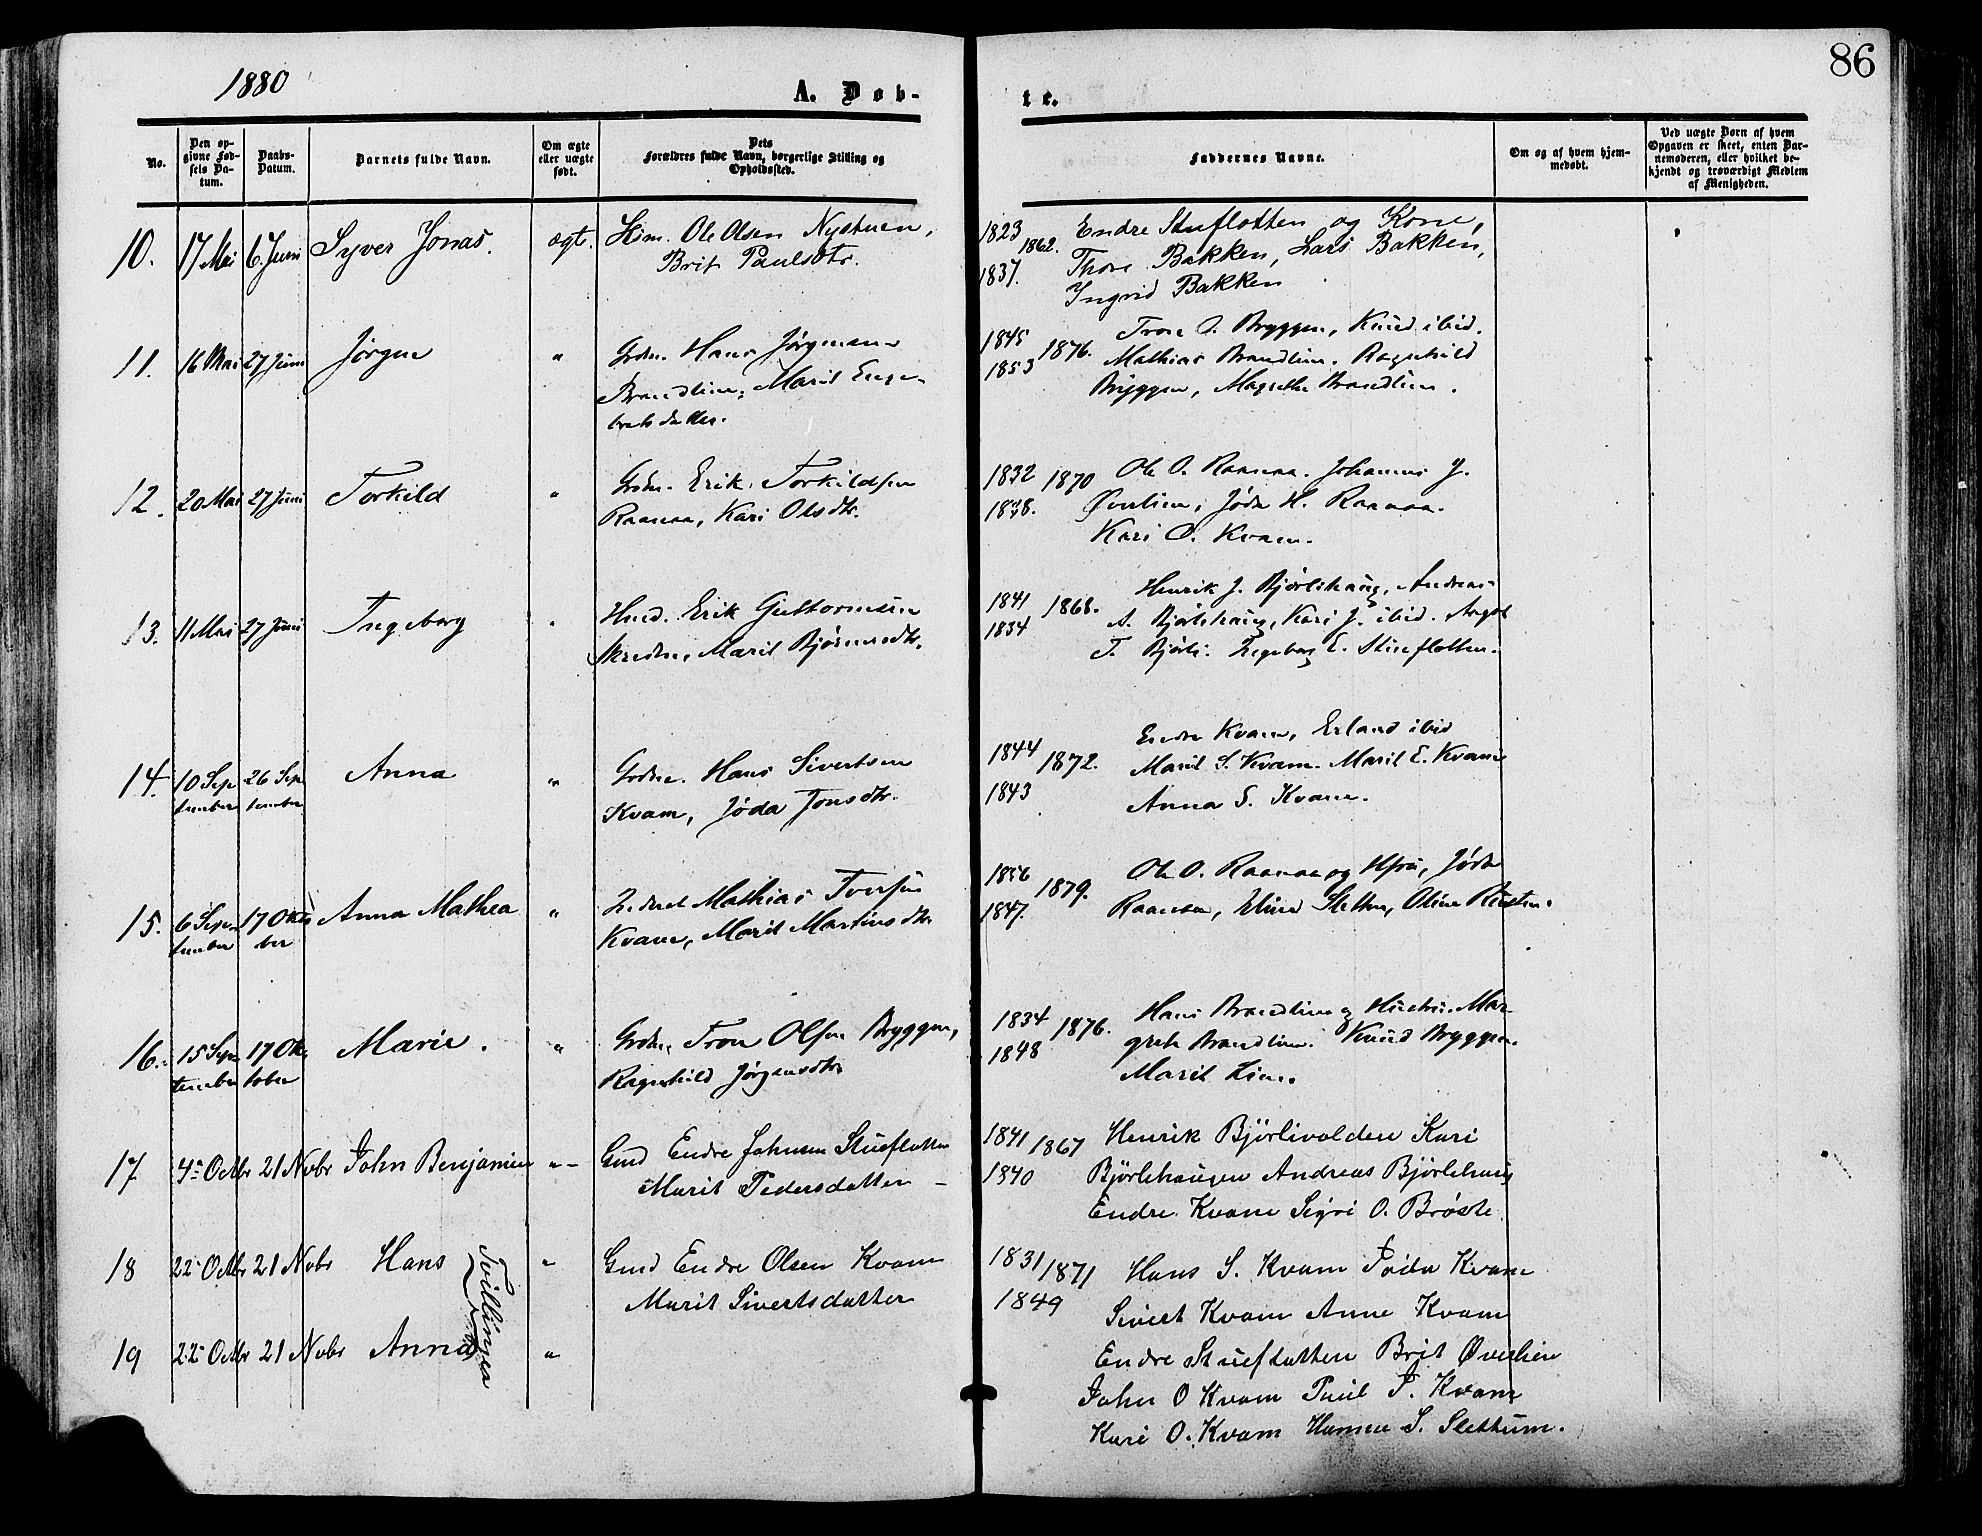 1880
A. Døb-
te.
86
No.
Den op-
givne Fød-
sels Da-
tum.
Daabs-
Datum.
Barnets fulde Navn.
Om ægte
eller uægte
født.
Dets
Forældres fulde Navn, borgerlige Stilling og
Opholdssted.
Faddernes Navne.
Om og af hvem hjem-
medøbt.
Ved uægte Børn af hvem
Opgaven er skeet, enten Bar-
nemoderen, eller hvilket be-
kjendt og troværdigt Medlem
af Menigheden.
10. 17 Mai 6 Juni Syver Jonas. ægte. Hsm. Ole Olsen Nystuen,
Brit Paulsdtr.
1823 1862. Endre Stueflotten og Kone,
1837. Thore Bakken, Lars Bakken,
Ingrid Bakken
11. 16 Mai 27 Juni Jørgen " Grdm. Hans Jørgensen
Brændlien, Marit Enge-
bretsdatter.
1845 1876. Tron O. Bryggen, Knud ibid.
1853 Mathias Brændlien. Ragnhild
Bryggen, Magrethe Brændlien.
12. 20 Mai 27 Juni Torkild " Grdm. Erik Torkildsen
Raanaa, Kari Olsdtr.
1832 1870 Ole O. Raanaa. Johannes J.
1838. Øverlien, Jøda H. Raanaa.
Kari O. Kvam.
13. 11 Mai 27 Juni Ingeborg " Husd. Erik Guttormsen
Skreden, Marit Bjørnsdtr.
1841 1868. Henrik J. Bjørlihaug, Andreas
1834 A. Bjørlihaug, Kari J. ibid. Angot
T. Bjørli. Ingeborg E. Stueflotten.
14. 10 Sep- 26 Sep- Anna " Grdm. Hans Sivertsen
tember tember Kvam, Jøda Jonsdtr.
1844 1872. Endre Kvam, Erland ibid
1843 Marit S. Kvam. Marit E. Kvam
Anna S. Kvam.
15. 6 Sep- 17 Octo- Anna Mathea " Mathias Iversen
tember ber Kvam, Marit Martinsdtr.
1856 1879. Ole O. Raanaa og Hstru, Jøda
1847. Raanaa, Eline Sletten, Oline Rusten.
16. 15 Sep- 17 Ok- Marie. " Grdm. Tron Olsen Bryggen,
tember tober Ragnhild Jørgensdtr.
1834 1876. Hans Brændlien og Hustru. Mar-
1848 grete Brændlien. Knud Bryggen.
Marit Lien.
17 4de Octbr 21 Novbr John Benjamin " Gmd Endre Johnsen Stueflotten
Marit Pedersdatter
1841 1867 Henrik Bjørlivolden Kari
1840 Bjørlehaugen Andreas Bjørlehaug
Endre Kvam Sigri O. Brøste
18 22de Octbr 21 Novbr Hans " Gmd Endre Olsen Kvam
Marit Sivertsdatter
Tvillinger
1831 1871 Hans S. Kvam Jøda Kvam
1849 Sivert Kvam Anne Kvam
19 22de Octbr 21 Novbr Anna "
Endre Stueflotten Brit Øverlien
John O Kvam Paul T. Kvam
Kari O. Kvam Hanna S. Slettum.